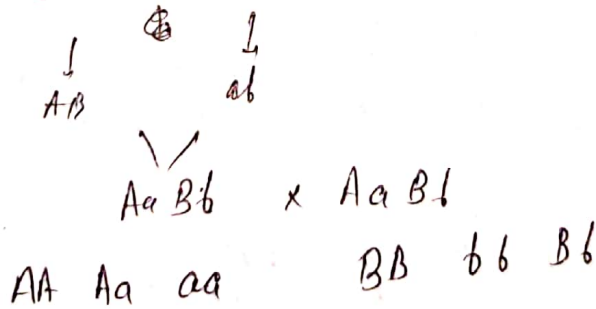 AB ab
Aa Bb x Aa Bb
AA Aa aa BB bb Bb